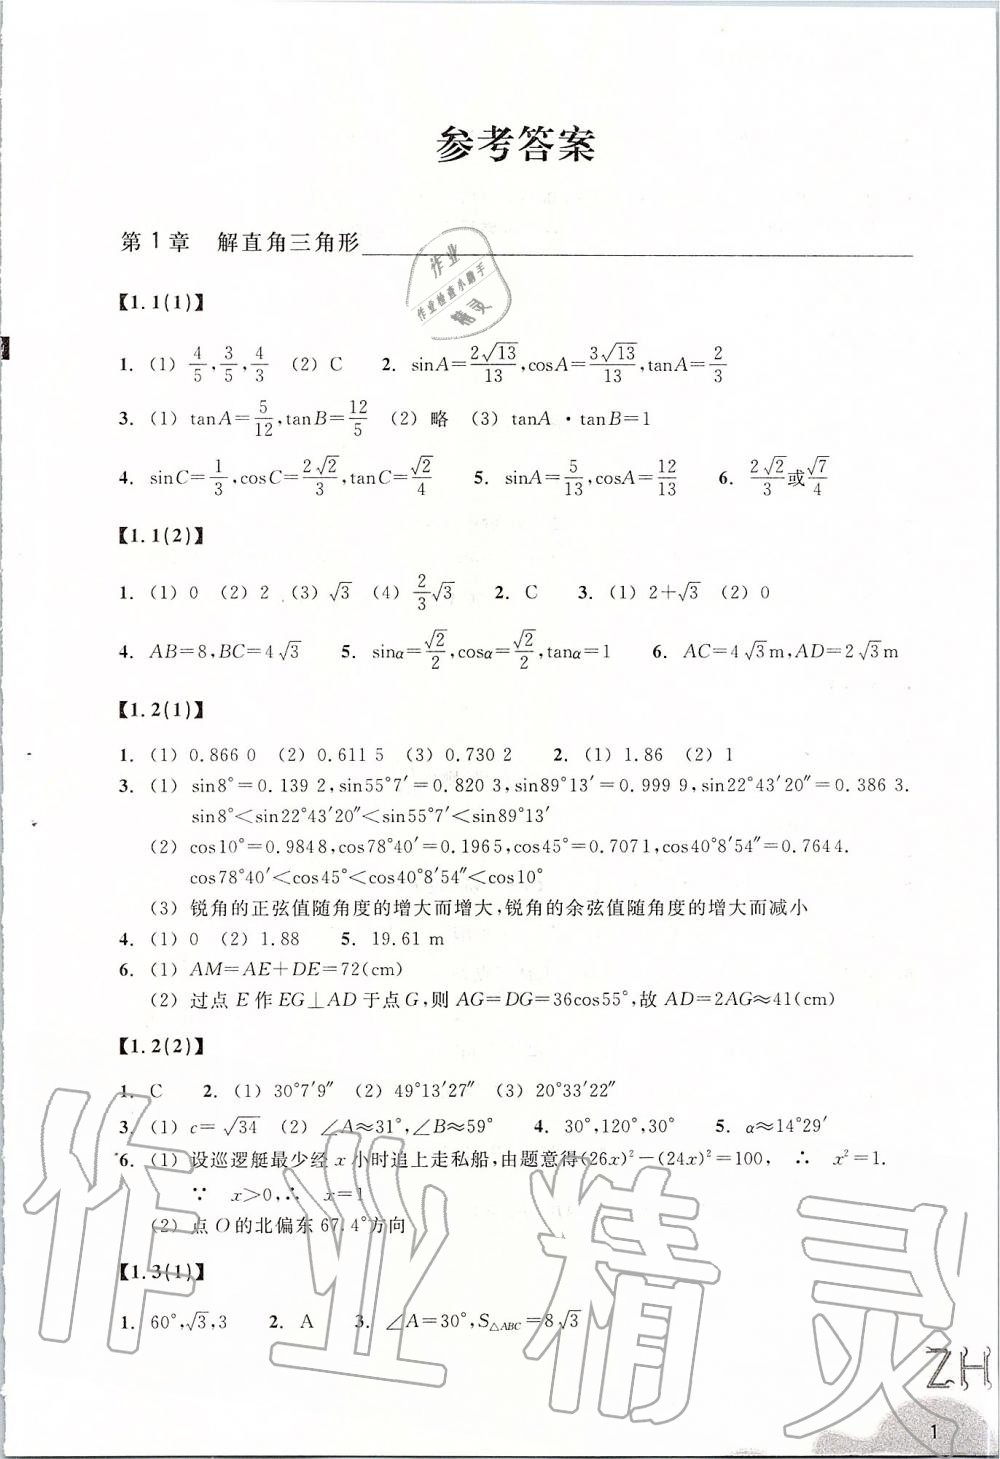 参考答案
第1章 解直角三角形
作业
作业检查小助手
精灵
【1.1(1)】
1. (1) 4/5, 3/5, 4/3 (2) C 2. sinA=2√13/13, cosA=3√13/13, tanA=2/3
3. (1) tanA=5/12, tanB=12/5 (2) 略 (3) tanA·tanB=1
4. sinC=1/3, cosC=2√2/3, tanC=√2/4 5. sinA=5/13, cosA=12/13 6. 2√2/3或√7/4
【1.1(2)】
1. (1) 0 (2) 2 (3) √3 (4) 2/3√3 2. C 3. (1) 2+√3 (2) 0
4. AB=8, BC=4√3 5. sinα=√2/2, cosα=√2/2, tanα=1 6. AC=4√3m, AD=2√3m
【1.2(1)】
1. (1) 0.866 0 (2) 0.611 5 (3) 0.730 2 2. (1) 1.86 (2) 1
3. (1) sin8°=0.139 2, sin55°7′=0.820 3, sin89°13′=0.999 9, sin22°43′20″=0.386 3.
sin8°<sin22°43′20″<sin55°7′<sin89°13′
(2) cos10°=0.984 8, cos78°40′=0.196 5, cos45°=0.707 1, cos40°8′54″=0.764 4.
cos78°40′<cos45°<cos40°8′54″<cos10°
(3) 锐角的正弦值随角度的增大而增大,锐角的余弦值随角度的增大而减小
4. (1) 0 (2) 1.88 5. 19.61 m
6. (1) AM=AE+DE=72(cm)
(2) 过点E作EG⊥AD于点G,则AG=DG=36cos55°,故AD=2AG≈41(cm)
【1.2(2)】
1. C 2. (1) 30°7′9″ (2) 49°13′27″ (3) 20°33′22″
3. (1) c=√34 (2) ∠A≈31°,∠B≈59° 4. 30°,120°,30° 5. α≈14°29′
*6. (1) 设巡逻艇最少经x小时追上走私船,由题意得(26x)²−(24x)²=100, ∴ x²=1.
∵ x>0,∴ x=1
(2) 点O的北偏东67.4°方向
【1.3(1)】
1. 60°,√3,3 2. A 3. ∠A=30°,S△ABC=8√3
作业精灵
ZH
1